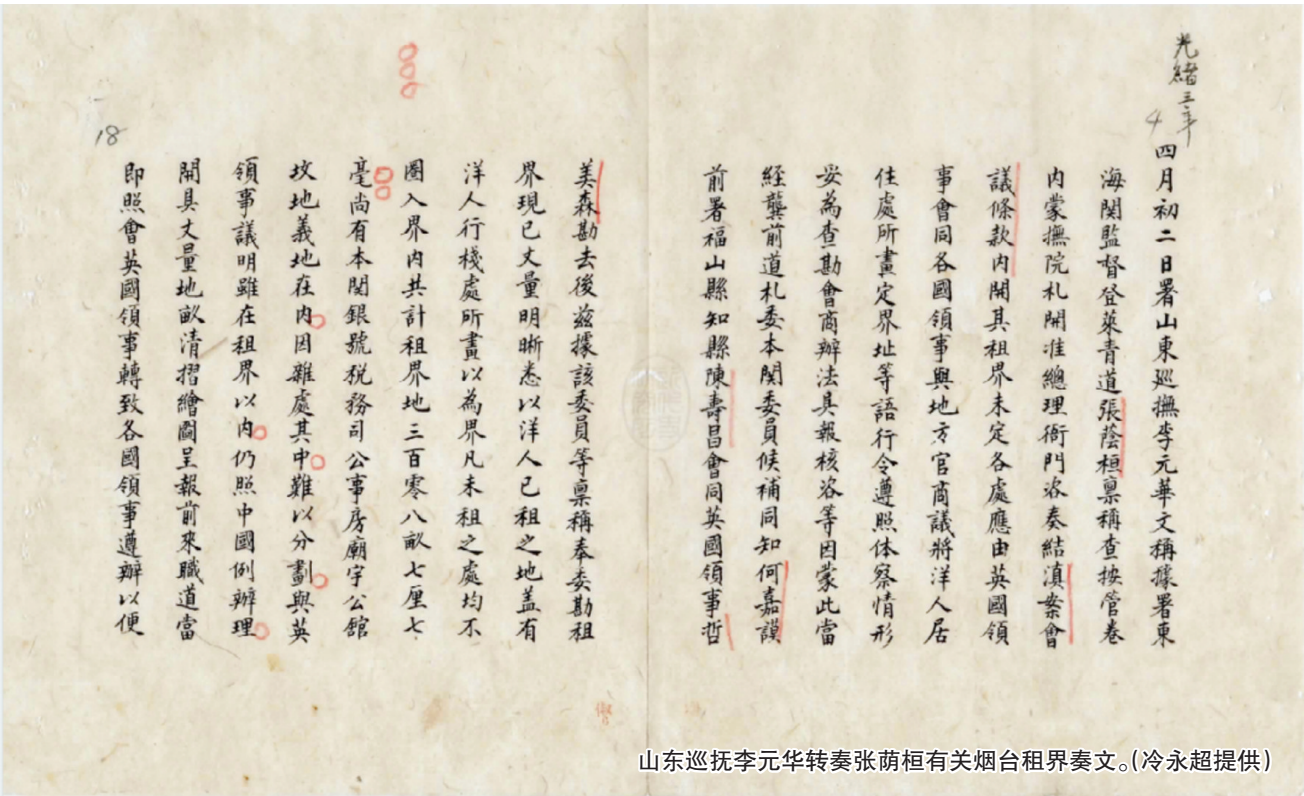 光緒三年
4
四月初二日署山東巡撫李元華文稱據署東
海関監督登萊青道張蔭桓稟稱查按管卷
内蒙撫院札開准總理衙門咨奏結滇案會
議條款内開其租界未定各處應由英國領
事會同各國領事與地方官商議將洋人居
住處所畫定界址等語行令遵照体察情形
妥為查勘會商辦法具報核咨等因蒙此當
経龔前道札委本関委員候補同知何嘉謨
前署福山縣知縣陳壽昌會同英國領事哲
美森勘去後兹據該委員等稟稱奉委勘租
界現已丈量明晰悉以洋人已租之地盖有
洋人行棧處所畫以為界凡未租之處均不
圈入界内共計租界地三百零八畝七厘七
毫尚有本関銀號税務司公事房廟宇公舘
坟地義地在内因雜處其中難以分劃與英
領事議明雖在租界以内仍照中國例辦理
開具丈量地畝清摺繪圖呈報前來職道當
即照會英國領事轉致各國領事遵辦以便
18
山东巡抚李元华转奏张荫桓有关烟台租界奏文。(冷永超提供)